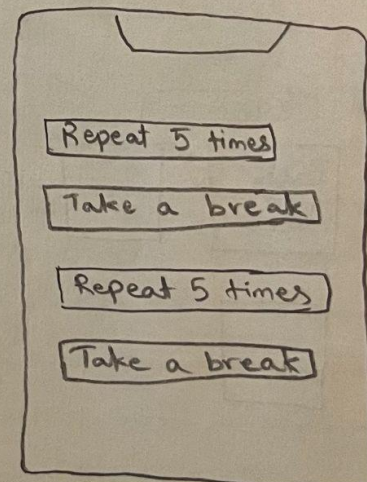 Repeat 5 times
Take a break
Repeat 5 times
Take a break